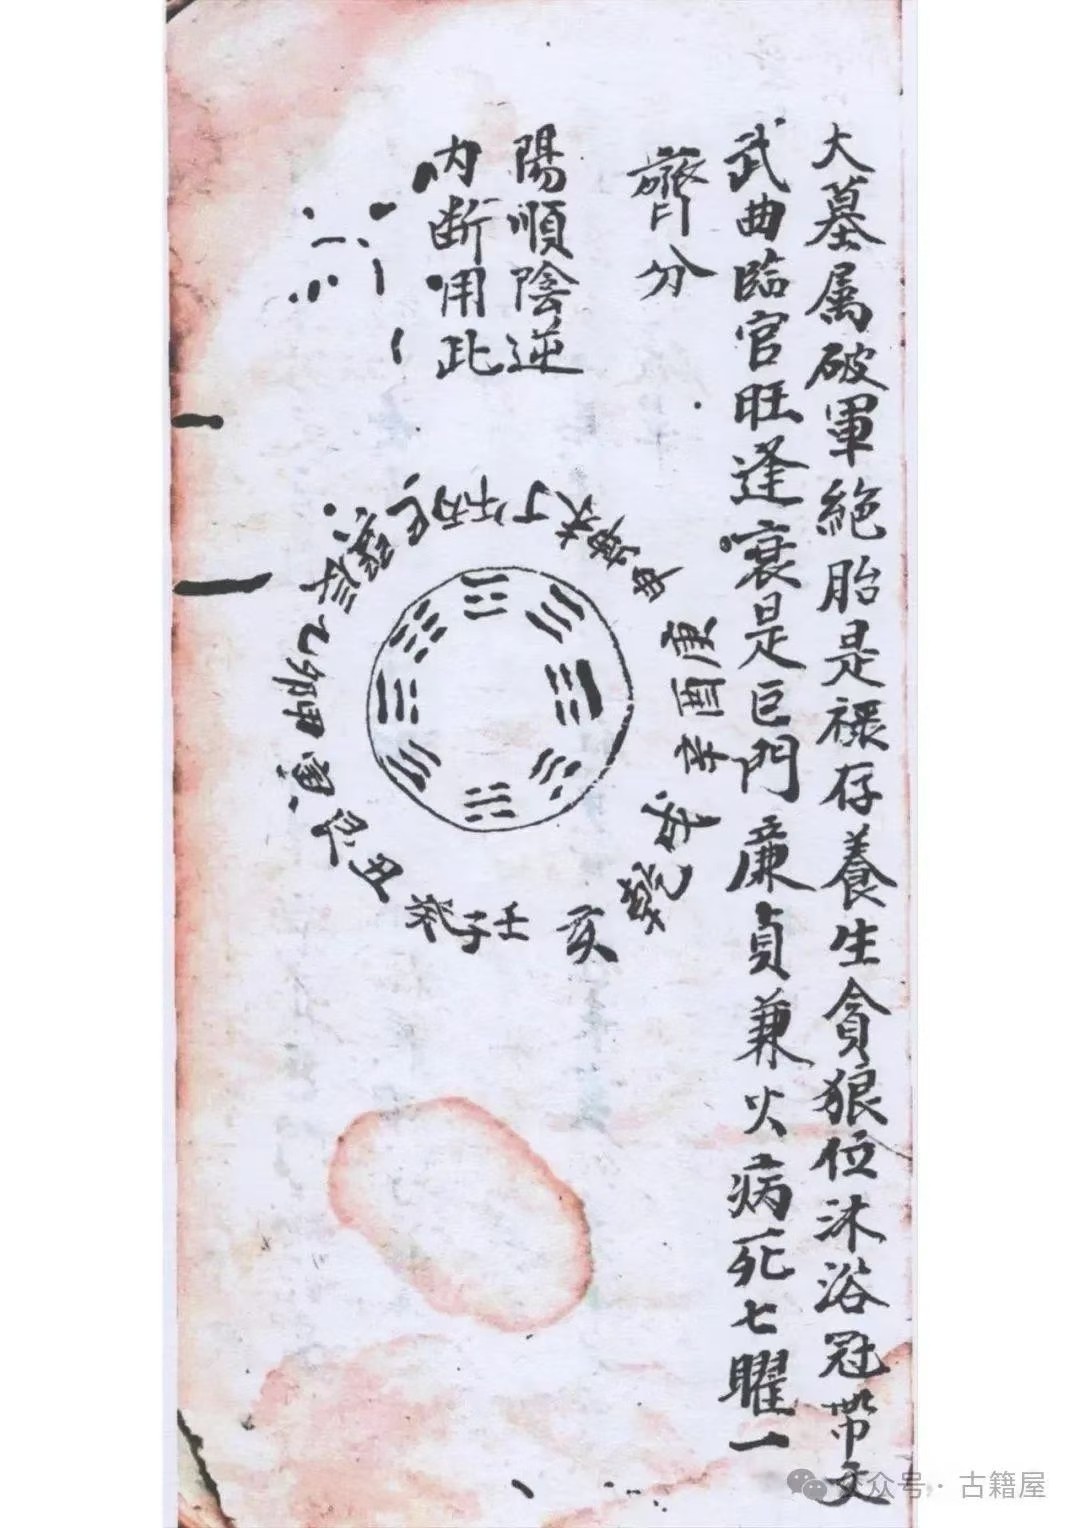 大墓属破軍絶胎是禄存養生貪狼位沐浴冠帶文
武曲臨官旺逢衰是巨門廉貞兼火病死七曜一
齊分
陽順陰逆
内断用此
丁
丙
巳
巽
辰
乙
卯
甲
寅
艮
丑
癸
子
壬
亥
乾
戌
辛
酉
庚
申
坤
众号·古籍屋